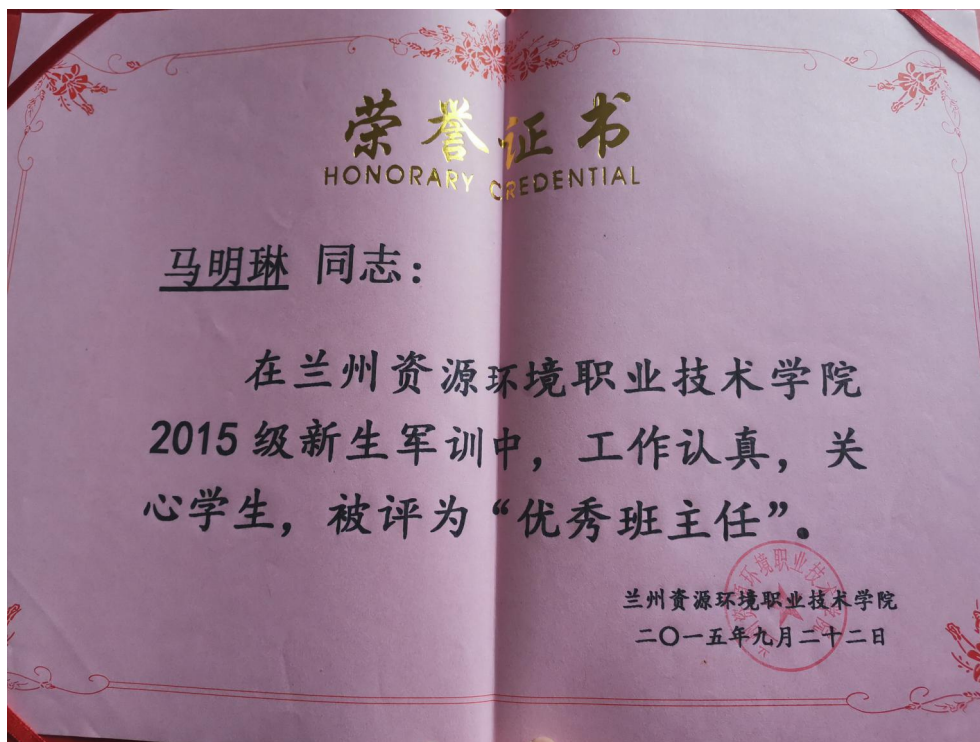 荣誉证书
HONORARY CREDENTIAL
马明琳 同志：
在兰州资源环境职业技术学院
2015级新生军训中，工作认真，关
心学生，被评为“优秀班主任”。
兰州资源环境职业技术学院
二〇一五年九月二十二日